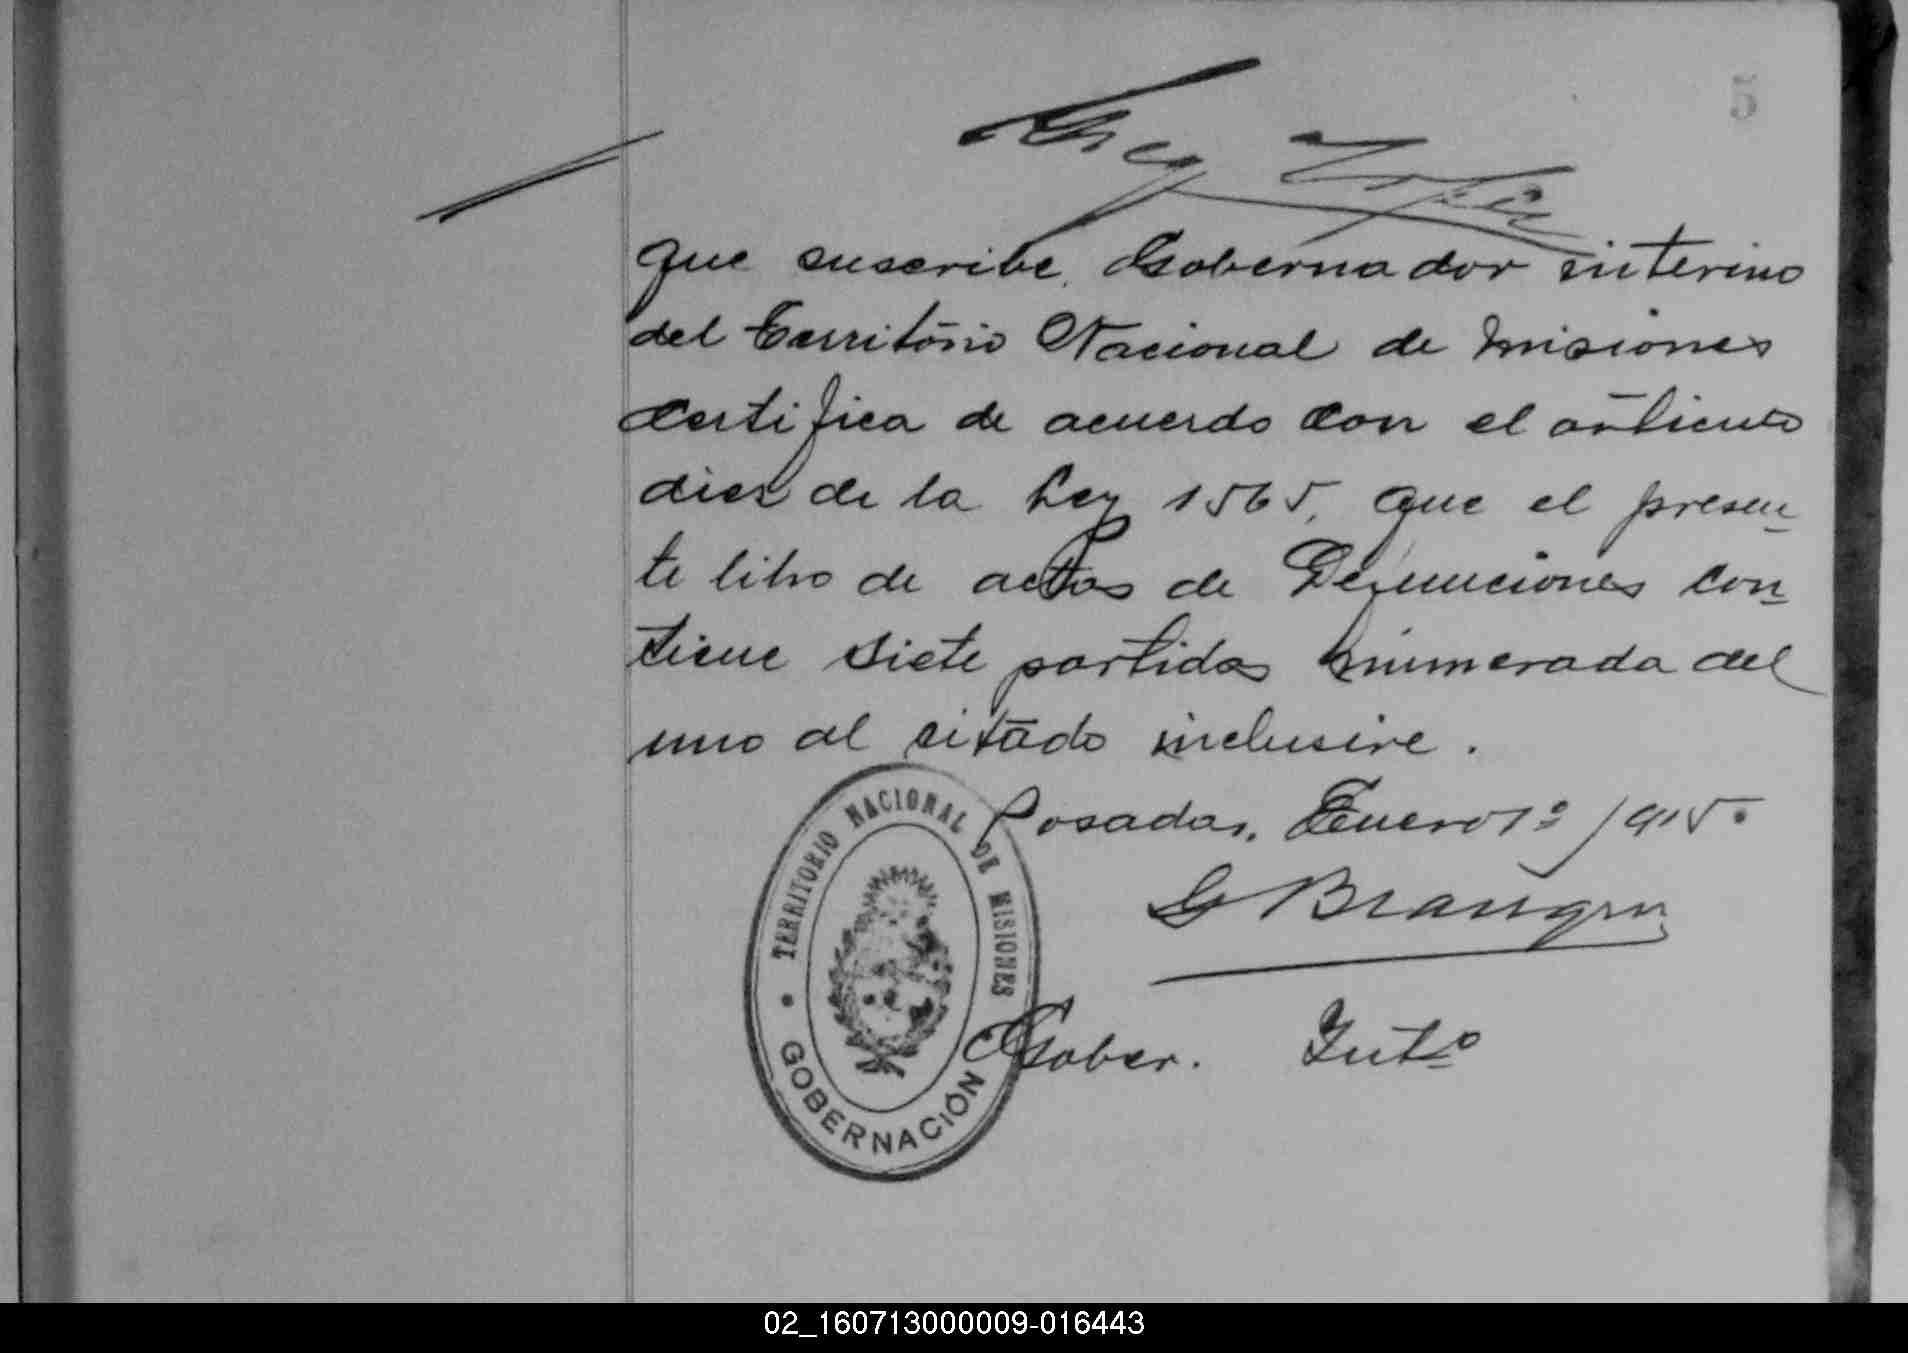 5
Greg López
que suscribe, Gobernador interino
del Território Nacional de Misiones
certifica de acuerdo con el artículo
diez de la Ley 1565, que el presen-
te libro de actas de Defunciones con-
tiene siete partidas numerada del
uno al citado inclusive.
Posadas, Enero 1º 1915.
G
Gober. Intº
TERRITORIO NACIONAL DE MISIONES
GOBERNACIÓN
02_160713000009-016443